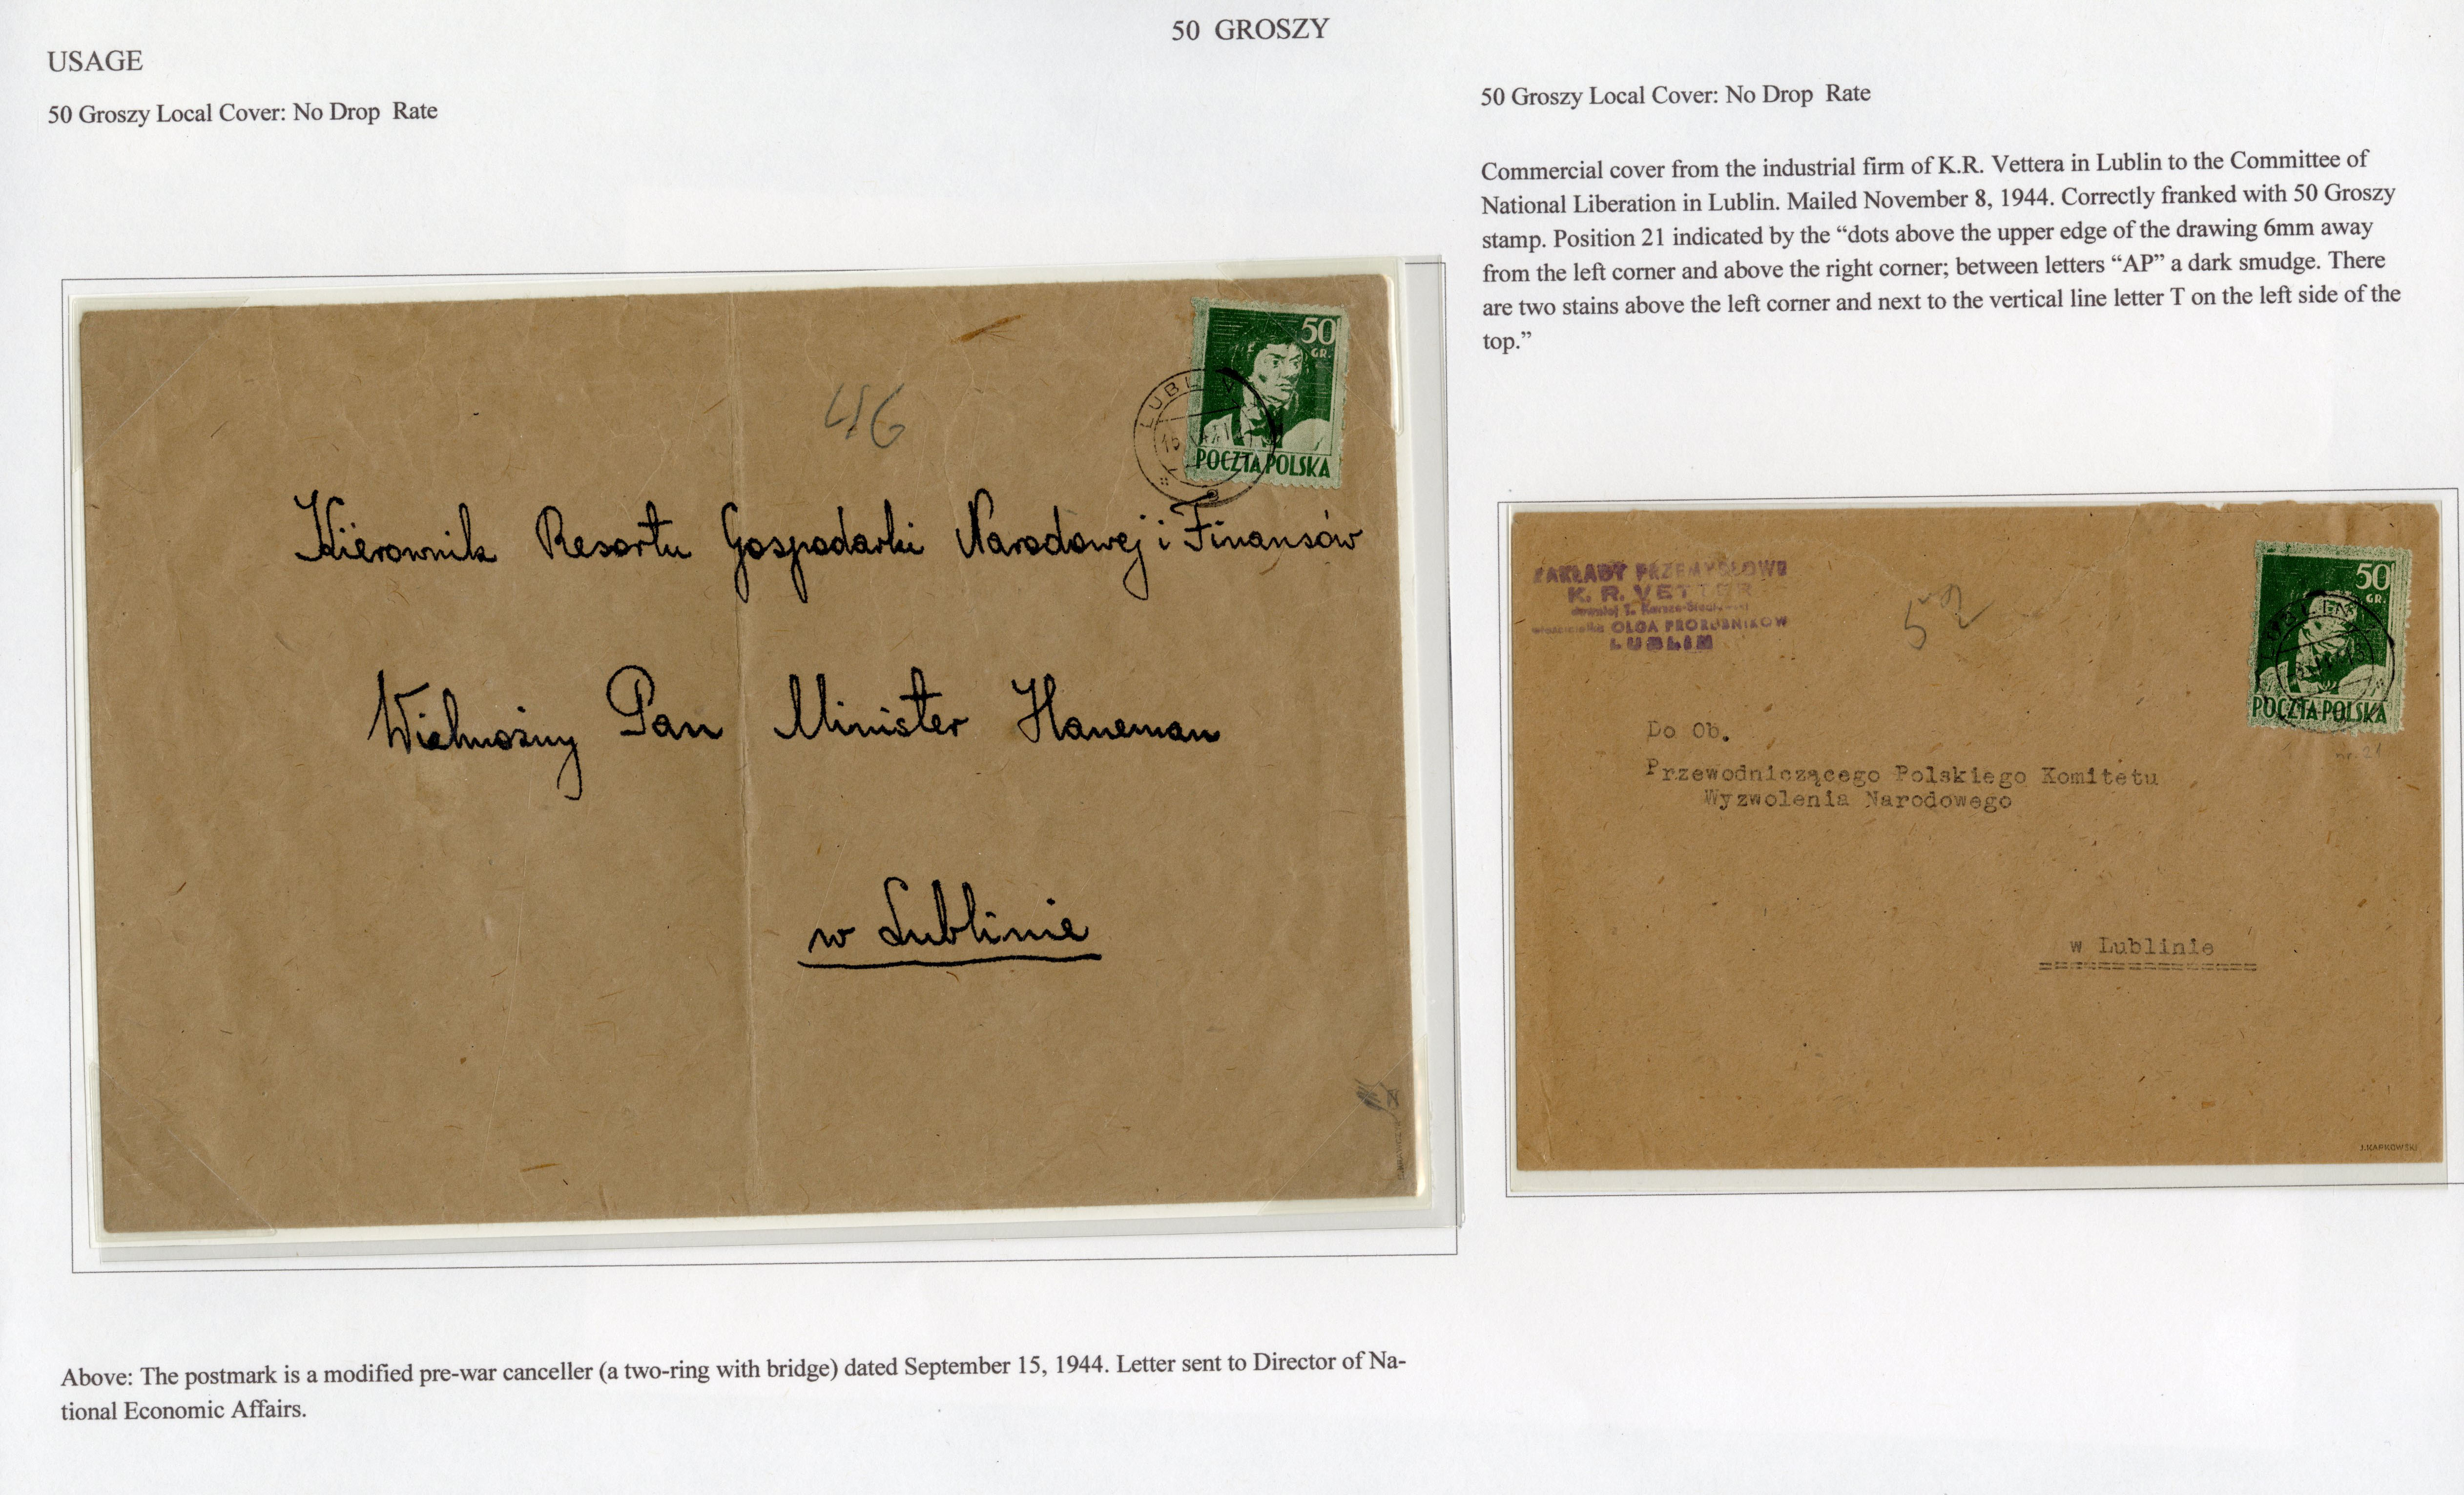 50 GROSZY
USAGE
50 Groszy Local Cover: No Drop Rate
46
50
GR.
LUBL
15
POCZTA POLSKA
Kierownik Resortu Gospodarki Narodowej i Finansów
Wielmożny Pan Minister Haneman
w Lublinie
Above: The postmark is a modified pre-war canceller (a two-ring with bridge) dated September 15, 1944. Letter sent to Director of Na-
tional Economic Affairs.
50 Groszy Local Cover: No Drop Rate
Commercial cover from the industrial firm of K.R. Vettera in Lublin to the Committee of
National Liberation in Lublin. Mailed November 8, 1944. Correctly franked with 50 Groszy
stamp. Position 21 indicated by the “dots above the upper edge of the drawing 6mm away
from the left corner and above the right corner; between letters “AP” a dark smudge. There
are two stains above the left corner and next to the vertical line letter T on the left side of the
top.”
ZAKŁADY PRZEMYSŁOWE
K. R. VETTER
OLGA PRORUBNIKOW
LUBLIN
52
50
GR.
POCZTA POLSKA
nr. 21
Do Ob.
Przewodniczącego Polskiego Komitetu
Wyzwolenia Narodowego
w Lublinie
J.KARKOWSKI